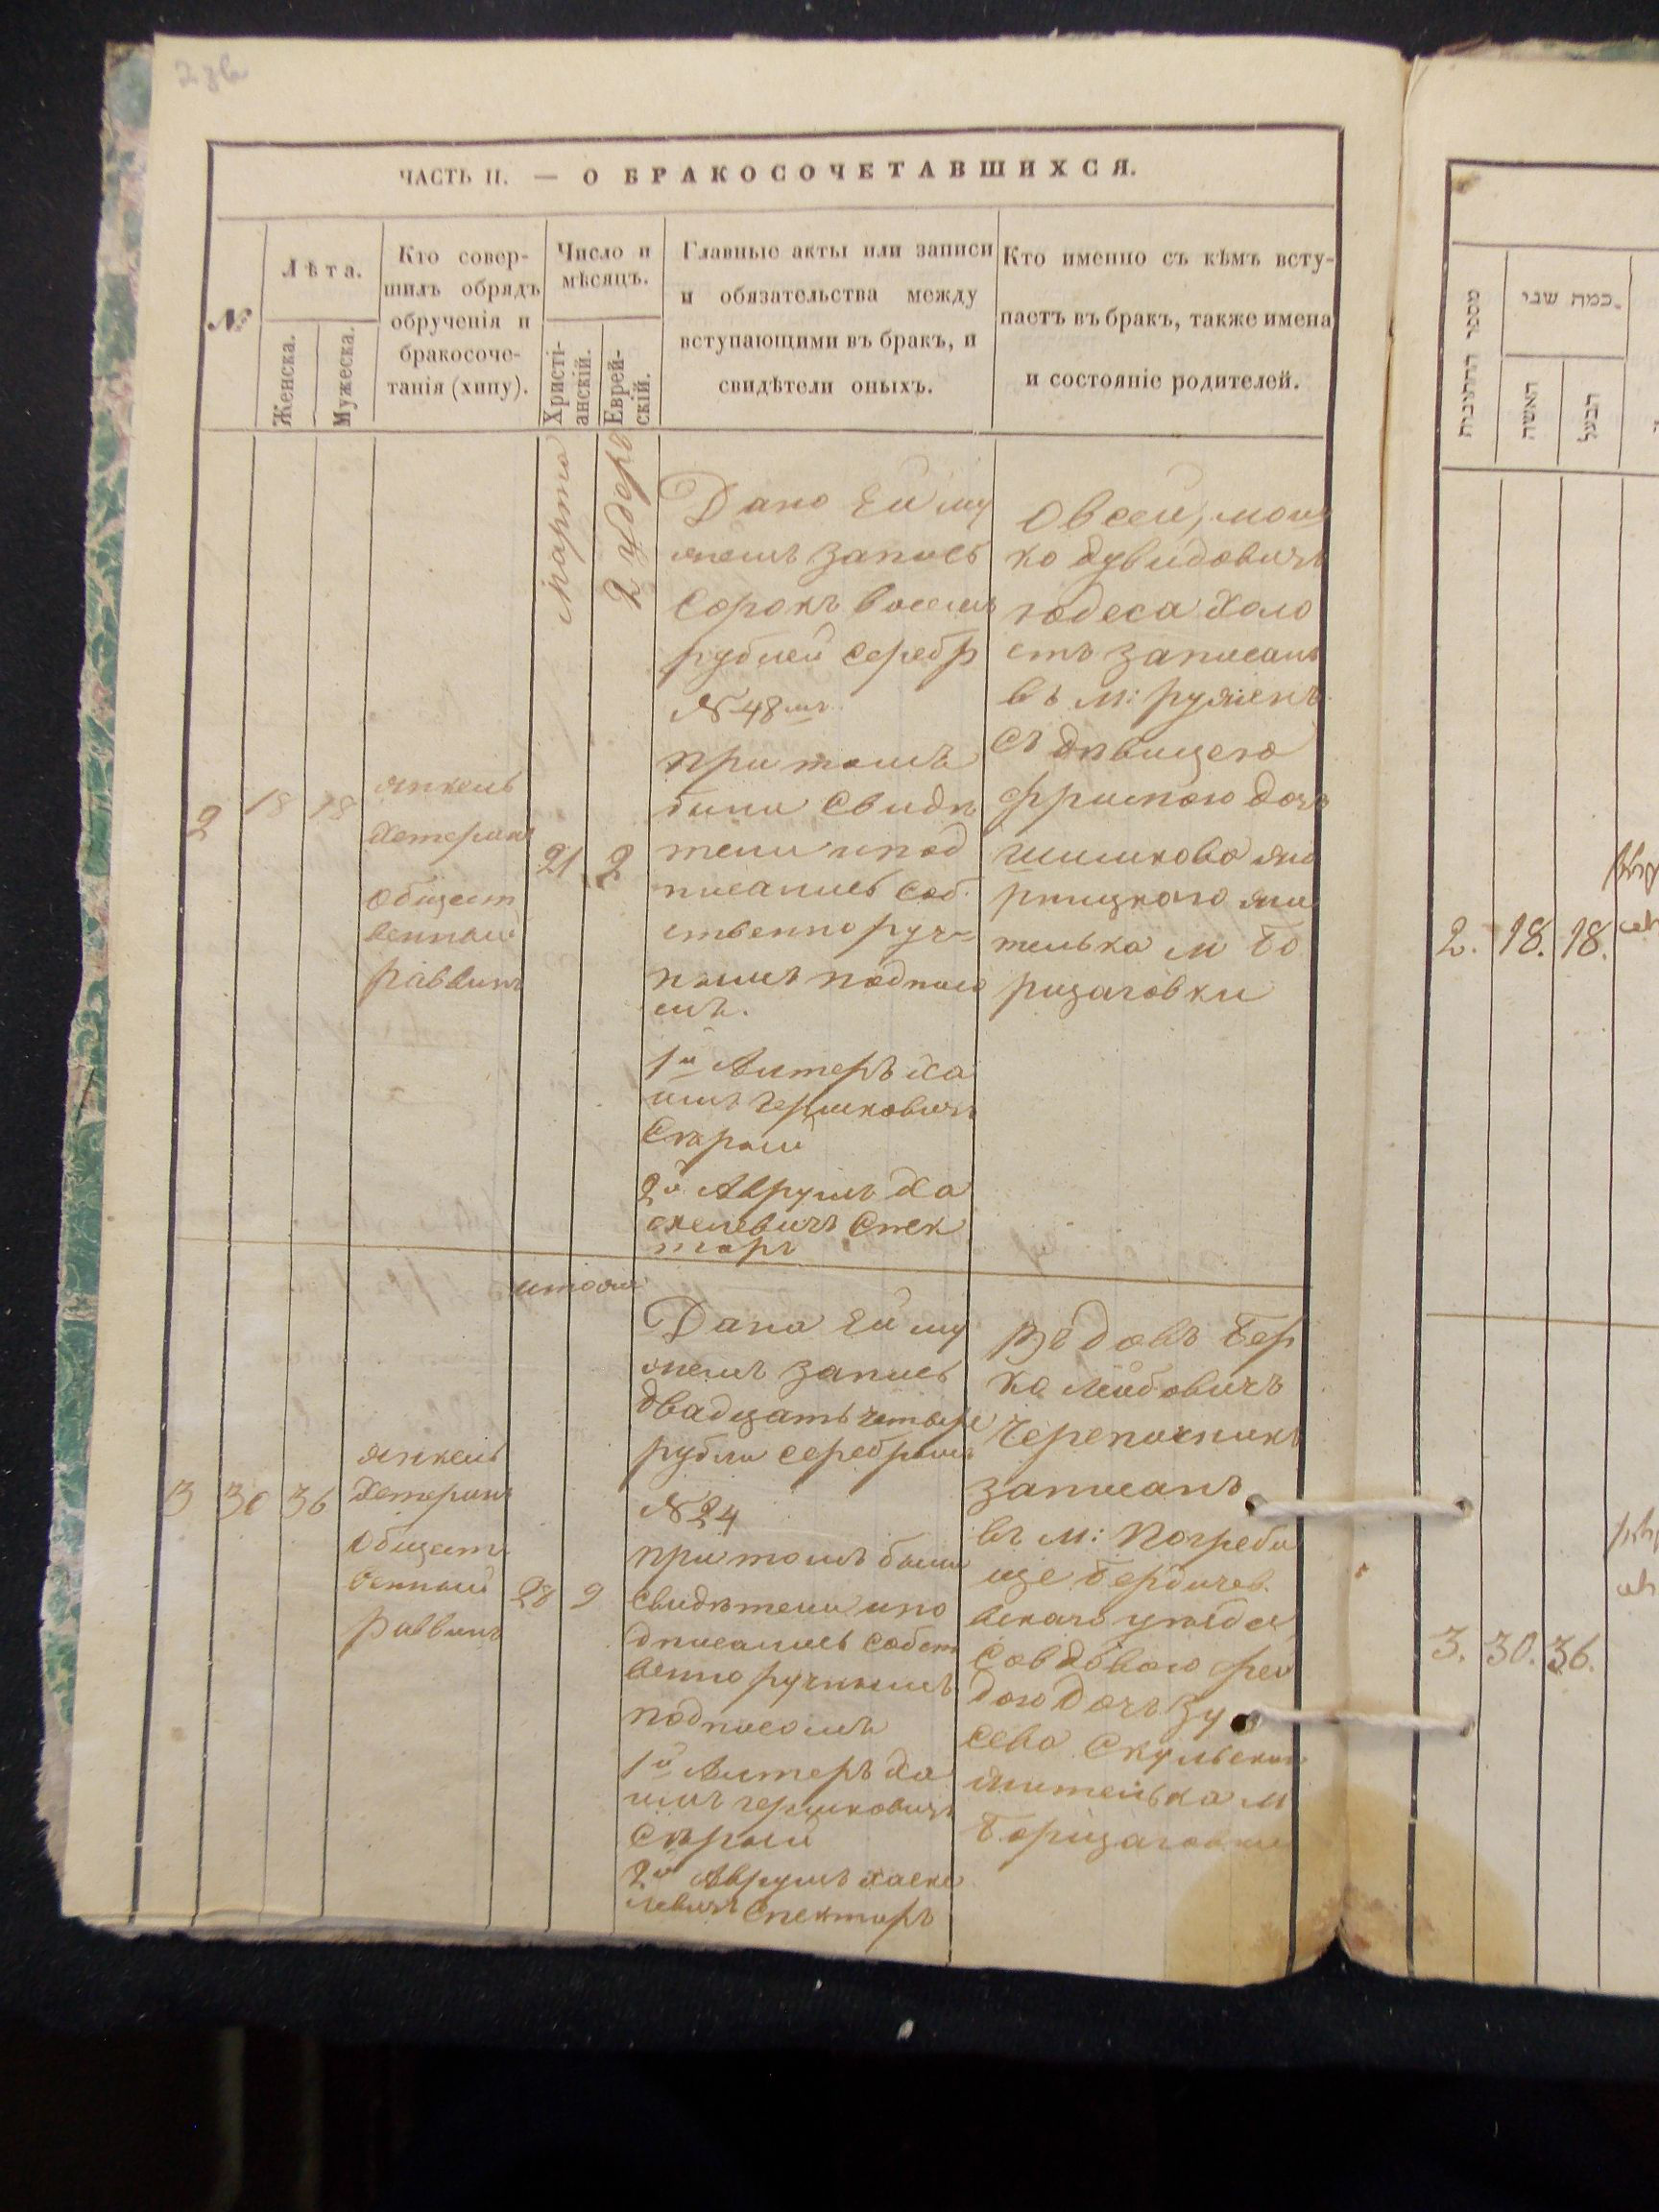 ЧАСТЬ II. — О БРАКОСОЧЕТАВШИХСЯ.
№
Лѣта.
Женска.
Мужеска.
Кто совер-
шилъ обрядъ
обрученія и
бракосоче-
танія (хипу).
Число и
мѣсяцъ.
Христі-
анскій.
Еврей-
скій.
Главные акты или записи
и обязательства между
вступающими въ бракъ, и
свидѣтели оныхъ.
Кто именно съ кѣмъ всту-
паетъ въ бракъ, также имена
и состояніе родителей.
марта
2
18
18
янкель
Хетерикъ
общест
венный
раввинъ
21
2
Дано Ей му
жемъ запись
Сорокъ восемь
рублей серебр
№ 48
при томъ
были свидѣ
тели и под
писались соб
ственноруч=
нымъ подписо
мъ.
1й Алтеръ Ха
имъ гершковичъ
Скрый
2й Аврумъ Ха
скелевичъ Спек
торъ
Овсей, мош
ко дувидовичъ
холо
стъ записанъ
въ м: ружинъ
съ дѣвицею
фримою дочь
шимкова
жи
телька м Бо
рщаговки
тожъ
3
30
36
янкель
Хетерикъ
общест
венный
раввинъ
28
9
Дана Ей му
жемъ запись
двадцать четыре
рубли серебромъ
№ 24
при томъ были
свидѣтели и по
дписались собст
венноручнымъ
подписомъ
1й Алтеръ Ха
имъ гершковичъ
Скрый
2й Аврумъ хаске
левичъ Спекторъ
вдовъ Бер
ко лейбовичъ
Черепичникъ
записанъ
въ м: Погреби
ще Бердичев
вскаго уѣзда
со вдовою фей
дою дочь Зу
сева Скульская
жителька м
Борщаговки
מספר החתונות
כמה שני
האשה
הבעל
2. 18. 18.
3. 30. 36.